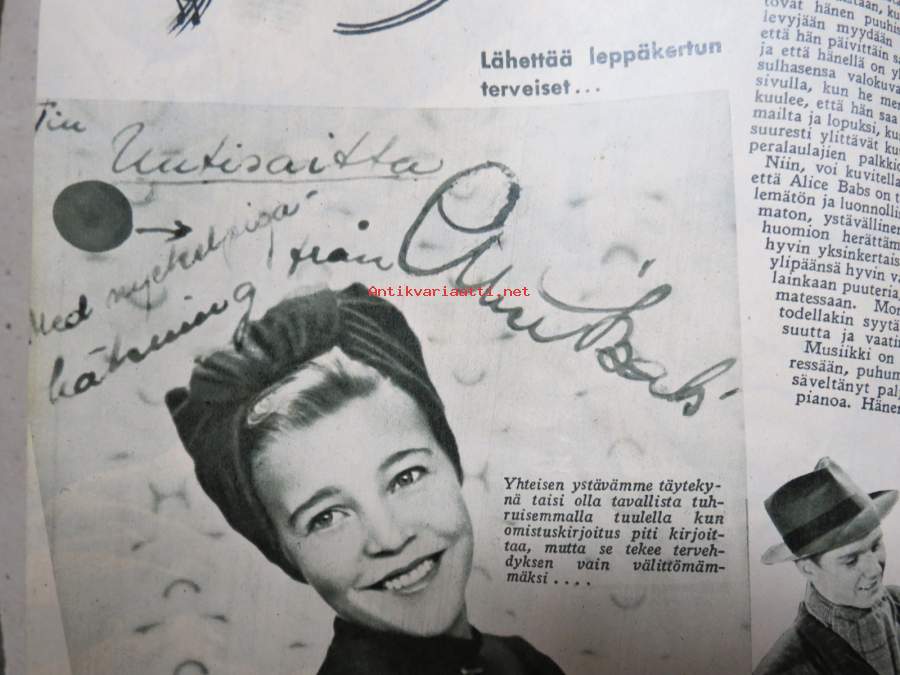 Lähettää leppäkertun
terveiset...
Till
Uutisaitta
Med nyckelpiga-
hälsning från Alice Babs
Antikvariaatti.net
Yhteisen ystävämme täyteky-
nä taisi olla tavallista tuh-
ruisemmalla tuulella kun
omistuskirjoitus piti kirjoit-
taa, mutta se tekee terveh-
dyksen vain välittömäm-
mäksi ....
tovat hänen puuhis
levyjään myydään
että hän päivittäin sa
ja että hänellä on yl
sulhasensa valokuva
sivulla, kun he men
kuulee, että hän saa
mailta ja lopuksi, ku
suuresti ylittävät ku
peralaulajien palkkio
Niin, voi kuvitella
että Alice Babs on t
lemätön ja luonnollis
maton, ystävällinen
huomion herättäm
hyvin yksinkertais
ylipäänsä hyvin vä
lainkaan puuteria,
matessaan. Mon
todellakin syytä
suutta ja vaatin
Musiikki on
ressään, puhum
säveltänyt palj
pianoa. Hänen